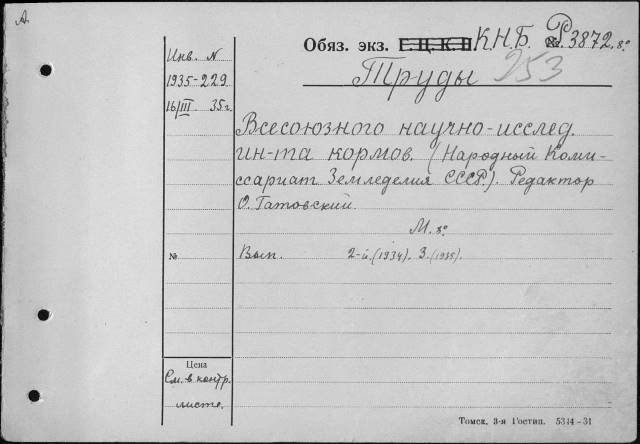 А.
Обяз. экз. Г.Ц.К.П. К.Н.Б. Р. 3872. 8°
253
Труды
Инв. N
1935-229
16/III 35 г.
Всесоюзного научно-исслед.
ин-та кормов. (Народный Коми-
ссариат Земледелия СССР.). Редактор
О. Гатовский.
М. 8°
№ Вып. 2-й. (1934). 3. (1935).
Цена
См. в контр.
листе.
Томск, 3-я Гостип. 5344-31